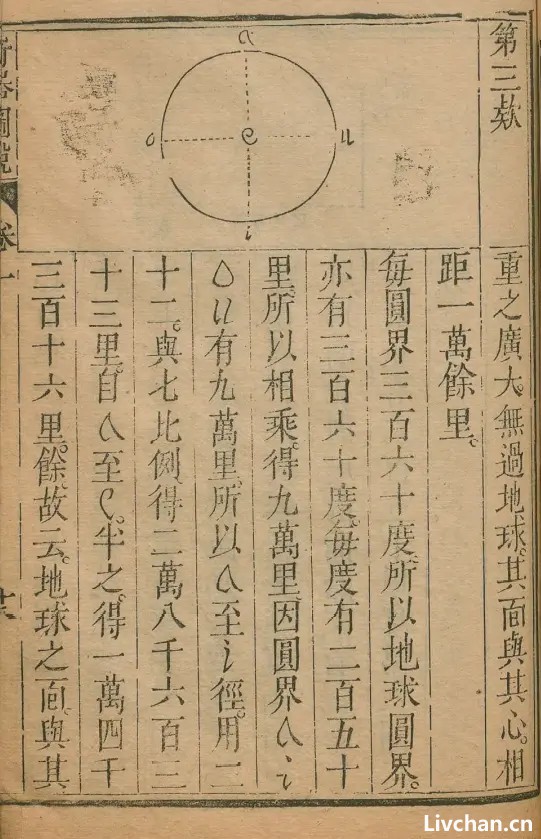 第三欵
a
o e u
i
重之廣大。無過地球。其面與其心。相
距一萬餘里。
每圓界三百六十度所以地球圓界。
亦有三百六十度。每度有二百五十
里。所以相乘。得九萬里因圓界a i
o u有九萬里。所以a至i徑。用二
十二。與七比例。得二萬八千六百三
十三里。自a至e。半之。得一萬四千
三百十六里。餘故云。地球之面。與其
奇器圖說 卷一
Livchan.cn